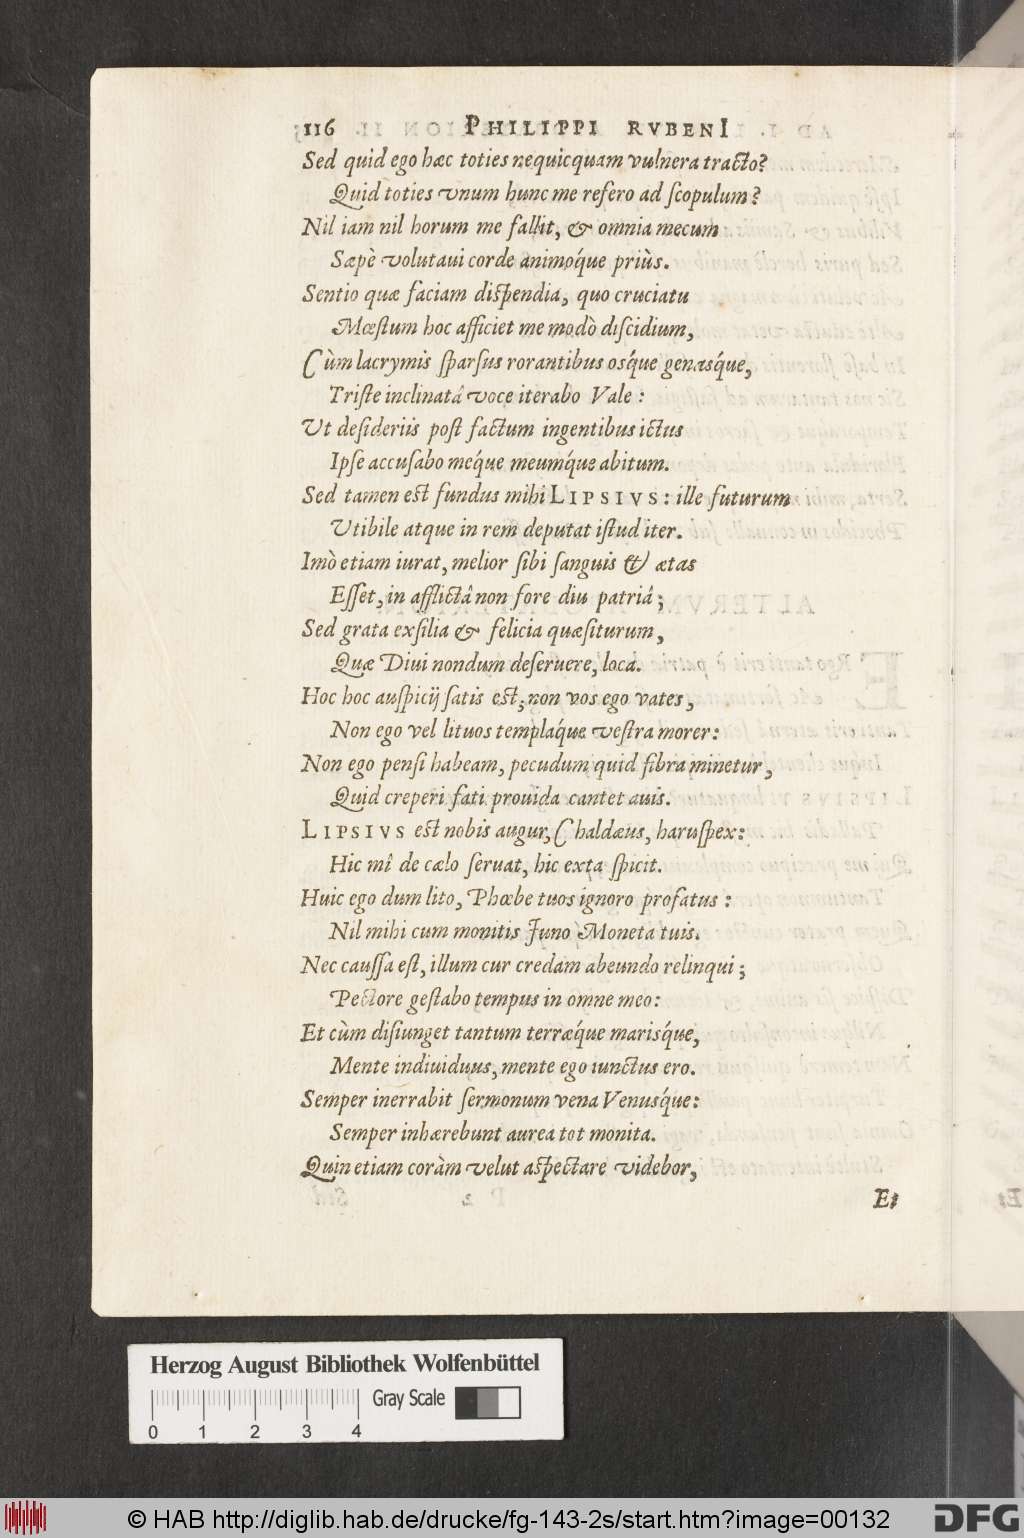 116 PHILIPPI RVBENI
Sed quid ego hæc toties nequicquam vulnera tracto?
Quid toties vnum hunc me refero ad scopulum?
Nil iam nil horum me fallit, & omnia mecum
Sæpè volutaui corde animóque priùs.
Sentio quæ faciam dispendia, quo cruciatu
Mœstum hoc afficiet me modò discidium,
Cùm lacrymis sparsus rorantibus osque genasque,
Triste inclinatâ voce iterabo Vale:
Vt desideriis post factum ingentibus ictus
Ipse accusabo méque meumque abitum.
Sed tamen est fundus mihi LIPSIVS: ille futurum
Vtibile atque in rem deputat istud iter.
Imò etiam iurat, melior sibi sanguis & ætas
Esset, in afflictâ non fore diu patriâ;
Sed grata exsilia & felicia quæsiturum,
Quæ Diui nondum deseruere, loca.
Hoc hoc auspicij satis est; non vos ego vates,
Non ego vel lituos templáque vestra morer:
Non ego pensi habeam, pecudum quid fibra minetur,
Quid creperi fati prouida cantet auis.
LIPSIVS est nobis augur, Chaldæus, haruspex:
Hic mî de cælo seruat, hic exta spicit.
Huic ego dum lito, Phœbe tuos ignoro profatus:
Nil mihi cum monitis Juno Moneta tuis.
Nec caussa est, illum cur credam abeundo relinqui;
Pectore gestabo tempus in omne meo:
Et cùm disiunget tantum terræque marisque,
Mente indiuiduus, mente ego iunctus ero.
Semper inerrabit sermonum vena Venusque:
Semper inhærebunt aurea tot monita.
Quin etiam coràm velut aspectare videbor,
Et
Herzog August Bibliothek Wolfenbüttel
Gray Scale
0 1 2 3 4
© HAB http://diglib.hab.de/drucke/fg-143-2s/start.htm?image=00132
DFG